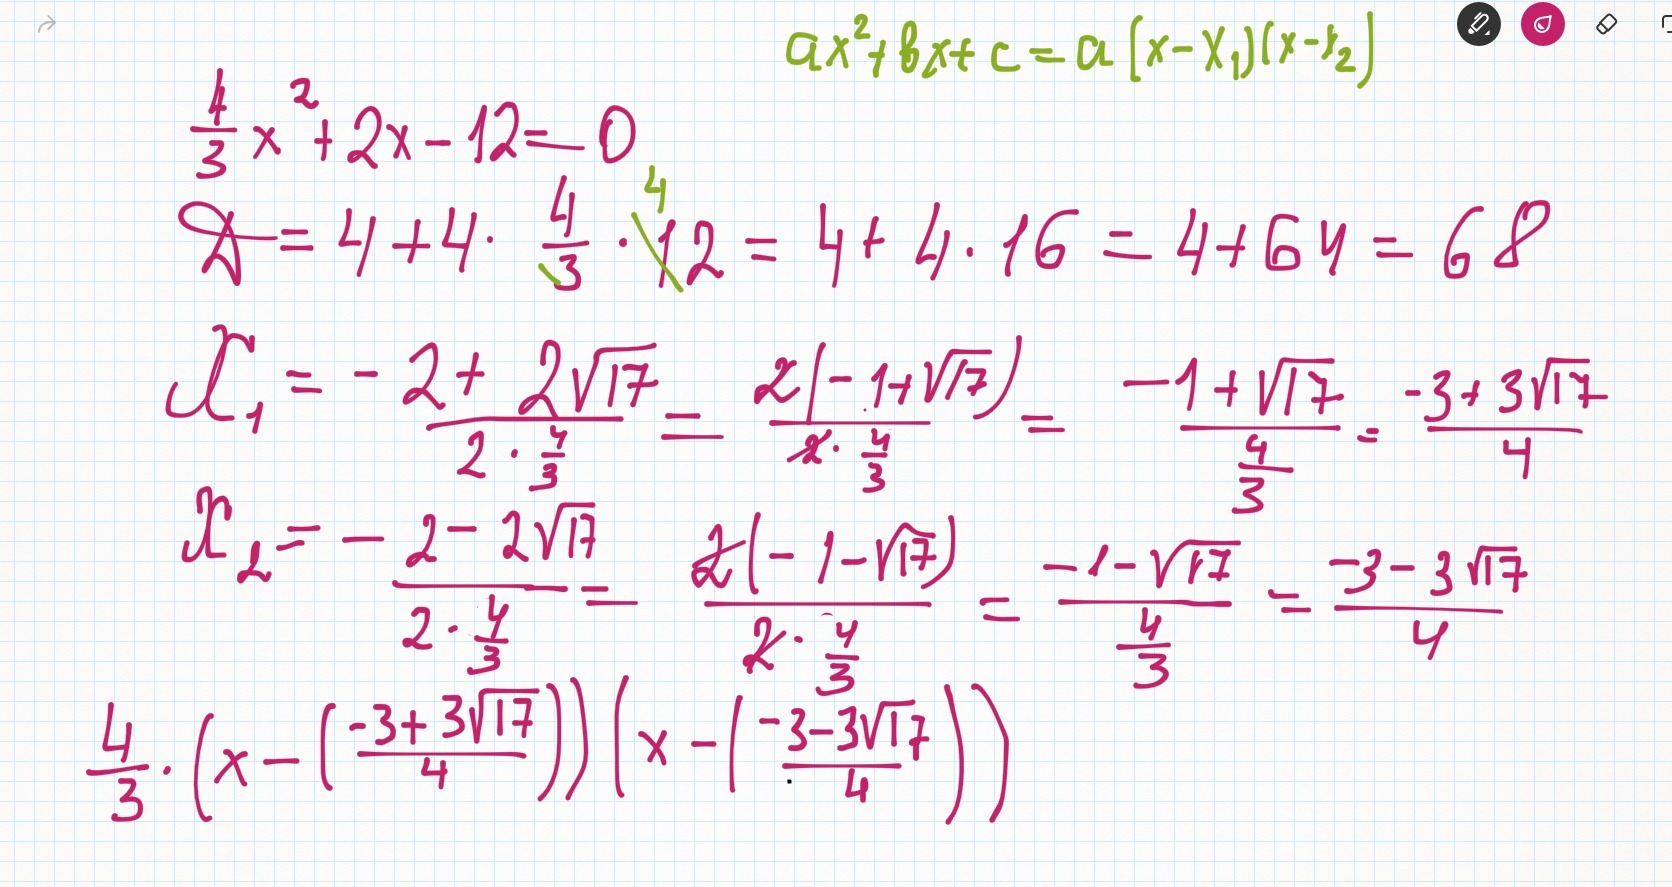 ax²+bx+c=a(x-x₁)(x-x₂)
4/3 x²+2x-12=0
D=4+4·4/3·12 4=4+4·16=4+64=68
x₁=(-2+2√17)/(2·4/3)=2(-1+√17)/(2·4/3)=(-1+√17)/(4/3)=(-3+3√17)/4
x₂=(-2-2√17)/(2·4/3)=2(-1-√17)/(2·4/3)=(-1-√17)/(4/3)=(-3-3√17)/4
4/3·(x-((-3+3√17)/4))(x-((-3-3√17)/4))